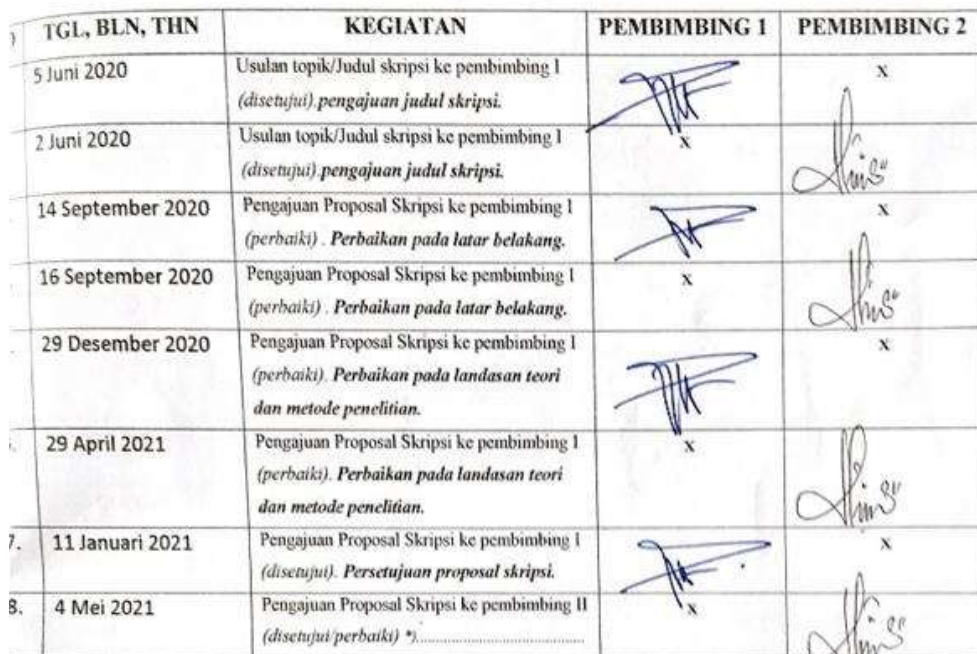 TGL, BLN, THN KEGIATAN PEMBIMBING 1 PEMBIMBING 2
5 Juni 2020 Usulan topik/Judul skripsi ke pembimbing I x
(disetujui).pengajuan judul skripsi.
2 Juni 2020 Usulan topik/Judul skripsi ke pembimbing I x
(disetujui).pengajuan judul skripsi.
14 September 2020 Pengajuan Proposal Skripsi ke pembimbing I x
(perbaiki) . Perbaikan pada latar belakang.
16 September 2020 Pengajuan Proposal Skripsi ke pembimbing I x
(perbaiki) . Perbaikan pada latar belakang.
29 Desember 2020 Pengajuan Proposal Skripsi ke pembimbing I x
(perbaiki). Perbaikan pada landasan teori
dan metode penelitian.
29 April 2021 Pengajuan Proposal Skripsi ke pembimbing I x
(perbaiki). Perbaikan pada landasan teori
dan metode penelitian.
7. 11 Januari 2021 Pengajuan Proposal Skripsi ke pembimbing I x
(disetujui). Persetujuan proposal skripsi.
8. 4 Mei 2021 Pengajuan Proposal Skripsi ke pembimbing II x
(disetujui/perbaiki) *)...................................